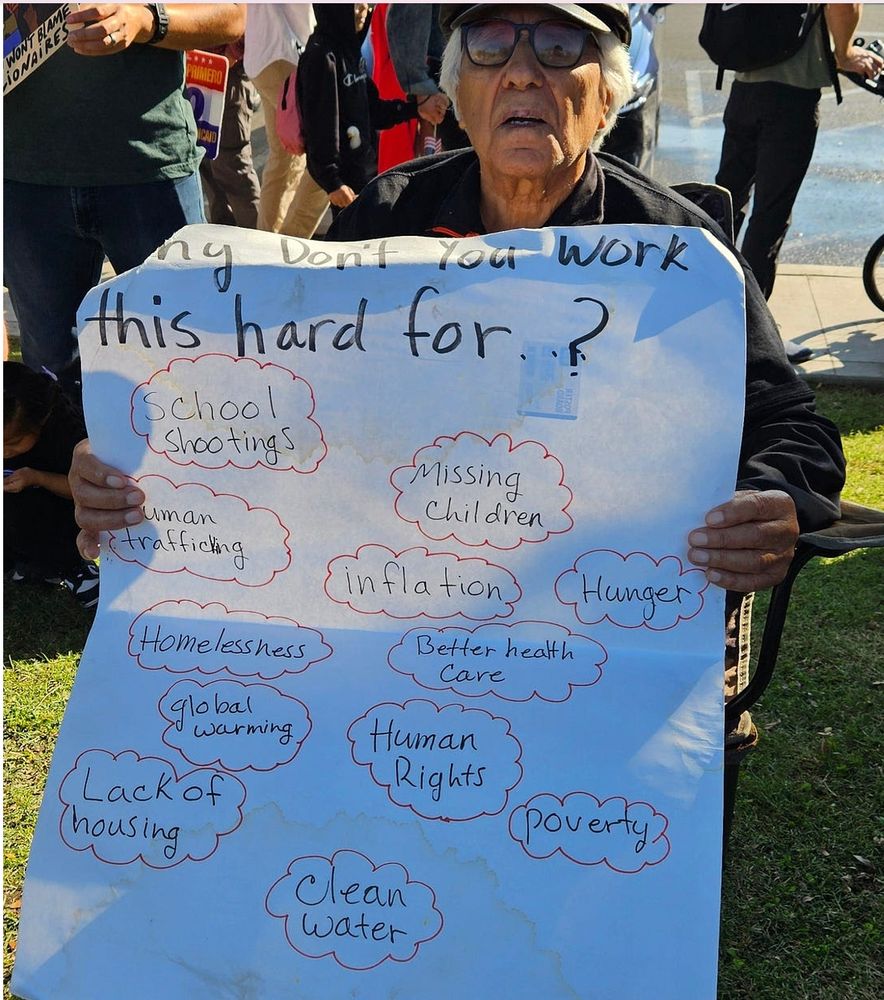 WONT BLAME
PRIMERO
Don't You Work
this hard for...?
School
Shootings
Missing
Children
trafficking
inflation
Hunger
Homelessness
Better health
Care
global
warming
Human
Rights
Lack of
housing
poverty
Clean
water